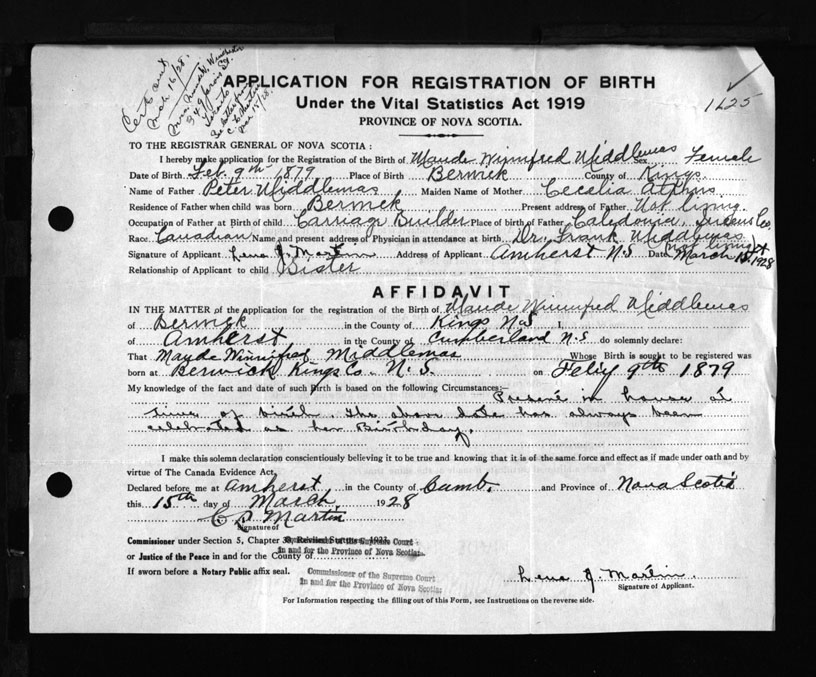 Cert out
Mch 16/28.
Mrs. Maude W.
349 Jarvis St.
Toronto
C. S. Martin
Mar 15/28.
1625
APPLICATION FOR REGISTRATION OF BIRTH
Under the Vital Statistics Act 1919
PROVINCE OF NOVA SCOTIA.
TO THE REGISTRAR GENERAL OF NOVA SCOTIA :
I hereby make application for the Registration of the Birth of Maude Winnifred Middlemas Sex Female
Date of Birth Feb. 9th 1879 Place of Birth Berwick County of Kings
Name of Father Peter Middlemas Maiden Name of Mother Cecelia Atkins
Residence of Father when child was born Berwick Present address of Father Not living
Occupation of Father at Birth of child Carriage Builder Place of birth of Father Caledonia, Queens Co.
Race Canadian Name and present address of Physician in attendance at birth Dr. Frank Middlemas (Not living)
Signature of Applicant Lena J. Martin Address of Applicant Amherst N.S Date March 15th 1928
Relationship of Applicant to child Sister
AFFIDAVIT
IN THE MATTER of the application for the registration of the Birth of Maude Winnifred Middlemas
of Berwick in the County of Kings N.S
of Amherst in the County of Cumberland N.S do solemnly declare:
That Maude Winnifred Middlemas Whose Birth is sought to be registered was
born at Berwick Kings Co. N.S. on Feby 9th 1879
My knowledge of the fact and date of such Birth is based on the following Circumstances:
Present in house at
time of birth. The above date has always been
celebrated as her Birthday.
I make this solemn declaration conscientiously believing it to be true and knowing that it is of the same force and effect as if made under oath and by
virtue of The Canada Evidence Act.
Declared before me at Amherst in the County of Cumb. and Province of Nova Scotia
this 15th day of March 1928
C S Martin
Signature of
Commissioner under Section 5, Chapter
or Justice of the Peace in and for the County of
In and for the Province of Nova Scotia
If sworn before a Notary Public affix seal.
Commissioner of the Supreme Court
In and for the Province of Nova Scotia
Lena J. Martin
Signature of Applicant.
For Information respecting the filling out of this Form, see Instructions on the reverse side.